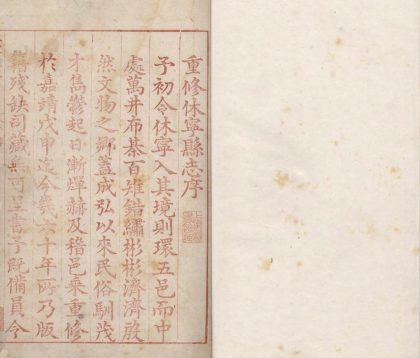 重修休寧縣志序
予初令休寧入其境則環五邑而中
處萬井布棊百雉錯繡彬彬濟濟殷
然文物之鄉蓋成弘以來民俗馴茂
才雋鬱起日漸煇赫及稽邑乗重修
於嘉靖戊申迄今幾六十年所乃版
籍殘缺司藏無可呈書予既備員令